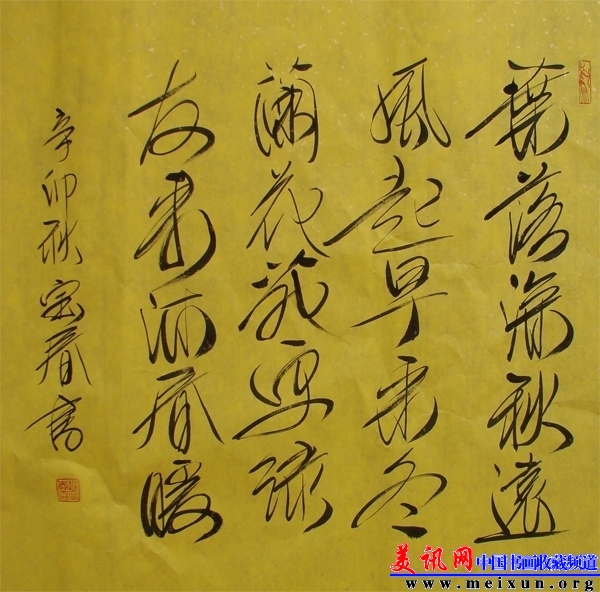 葉落漸秋遠
風起早来冬
蘭花
友来春暖
辛卯秋宝春書
美讯网 中国书画收藏频道
www.meixun.org